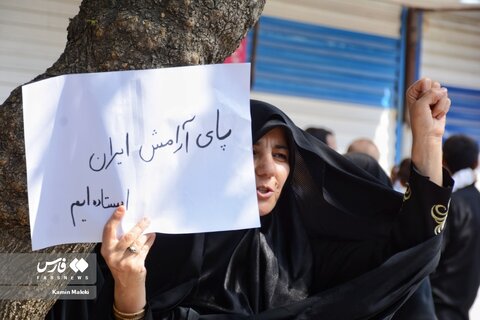 پای آرامش ایران
ایستاده ایم
فارس
FARSNEWS
Kamin Maleki